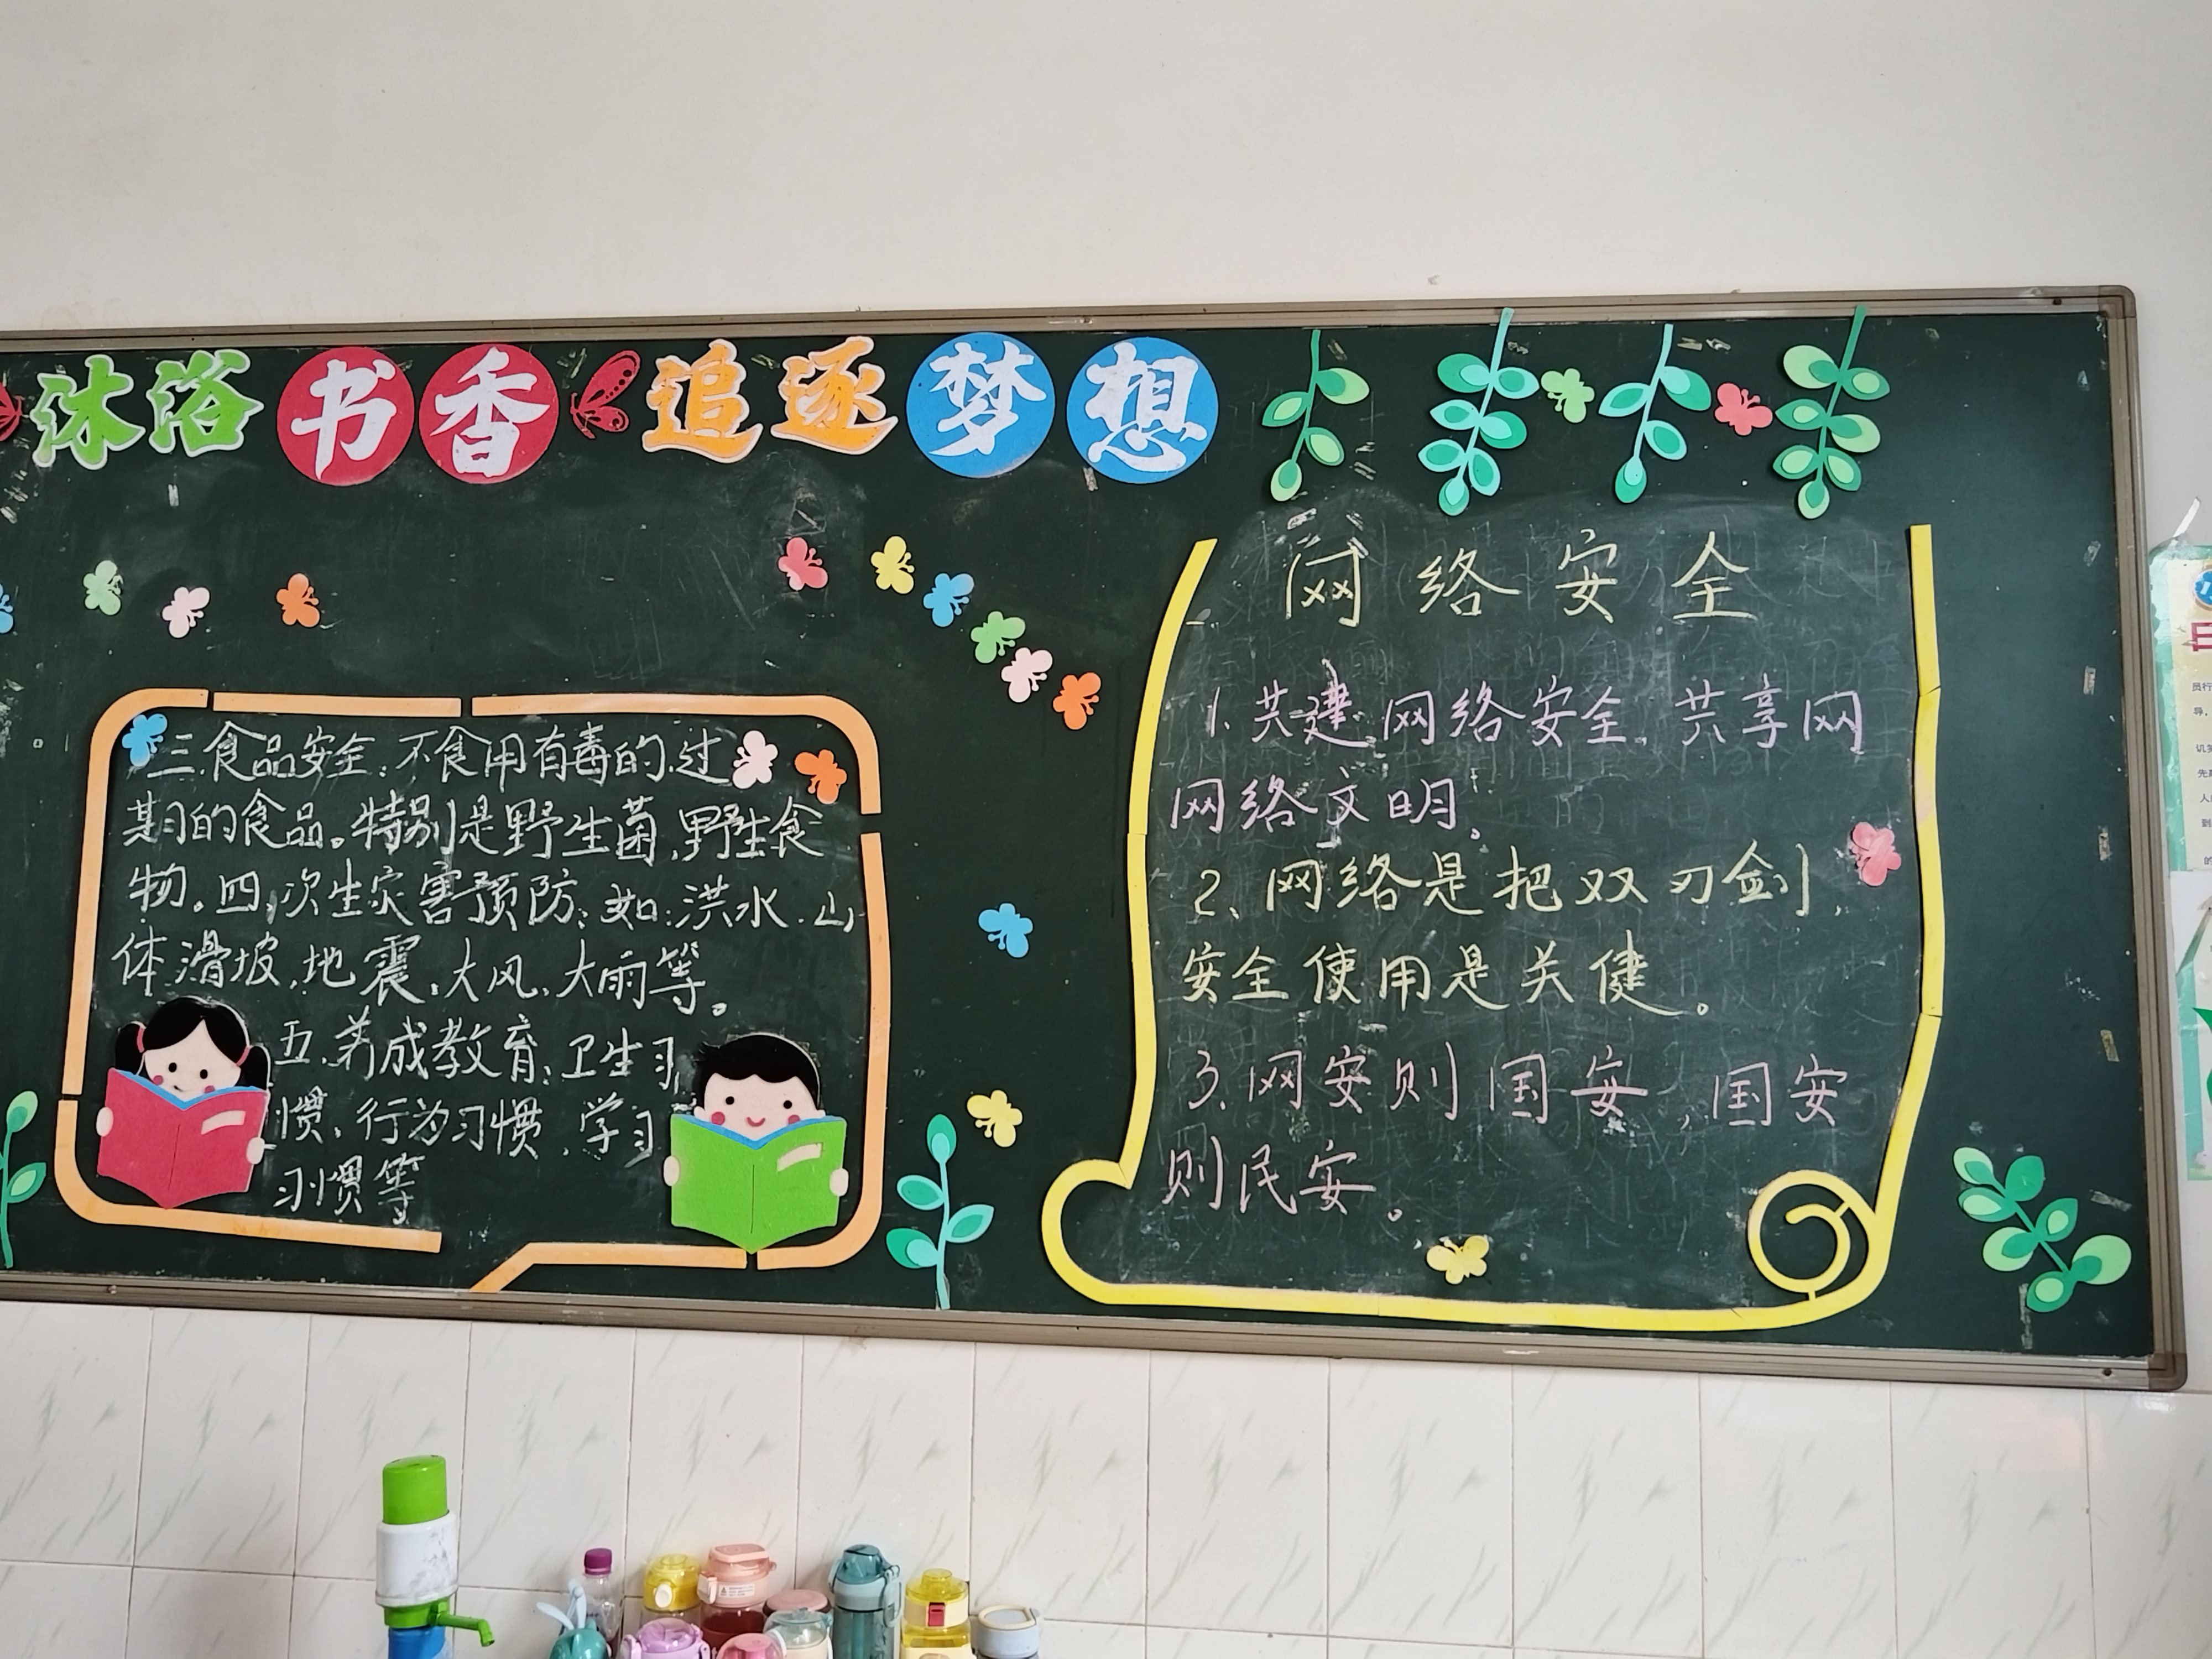 沐浴书香 追逐梦想
三.食品安全:不食用有毒的.过
期的食品。特别是野生菌,野生食
物。四,次生灾害预防:如:洪水.山
体滑坡,地震,大风,大雨等。
五.养成教育:卫生习
惯,行为习惯,学习
习惯等
网络安全
1.共建网络安全,共享网
网络文明。
2、网络是把双刃剑,
安全使用是关健。
3.网安则国安,国安
则民安。